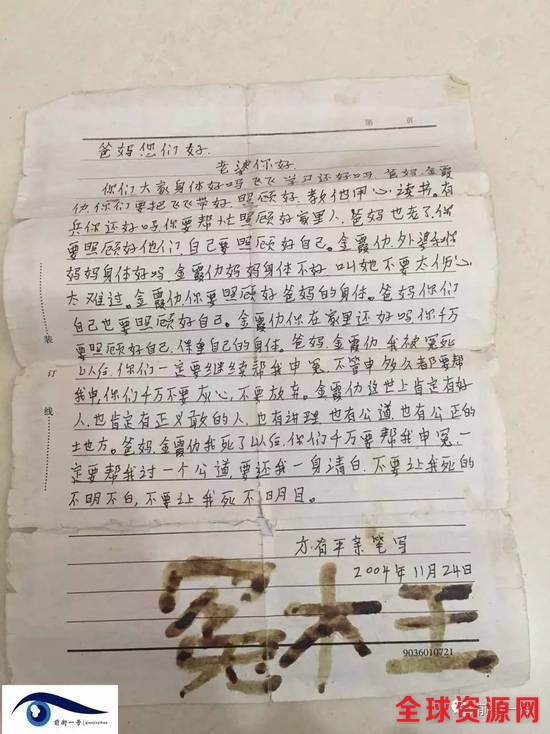 第 页
爸妈您们好.
老婆你好.
你们大家身体好吗飞飞学习还好吗 爸妈金霞
伪你们要把飞飞带好.照顾好.教他用心读书。有
兵你还好吗你要帮忙照顾好家里人.爸妈也老了你
要照顾好他们.自己要照顾好自己。金霞伪外婆和你
妈妈身体好吗.金霞伪妈妈身体不好 叫她不要太伤心
太难过。金霞伪你要照顾好爸妈的身体。爸妈你们
自己也要照顾好自己。金霞伪你在家里还好吗你千万
要照顾好自己.保重自己的身体。爸妈.金霞伪 我被冤死
以后.你们一定要继续帮我申冤.不管申多久都要帮
我申.你们千万不要灰心.不要放弃。金霞伪这世上肯定有好
人.也肯定有正义敢的人.也有讲理 也有公道.也有公正的
土地方。爸妈.金霞伪我死了以后.你们千万要帮我申冤.一
定要帮我讨一个公道.要还我一身清白.不要让我死的
不明不白.不要让我死不明目。
方春平亲笔写
2004年11月24日
冤大王
装
订
线
9036010721
前街一号
qianjieyihao
前街一
全球资源网